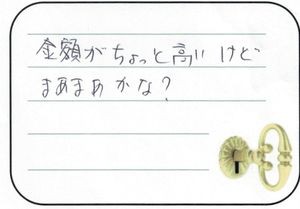 金額がちょっと高いけど
まあまあかな?